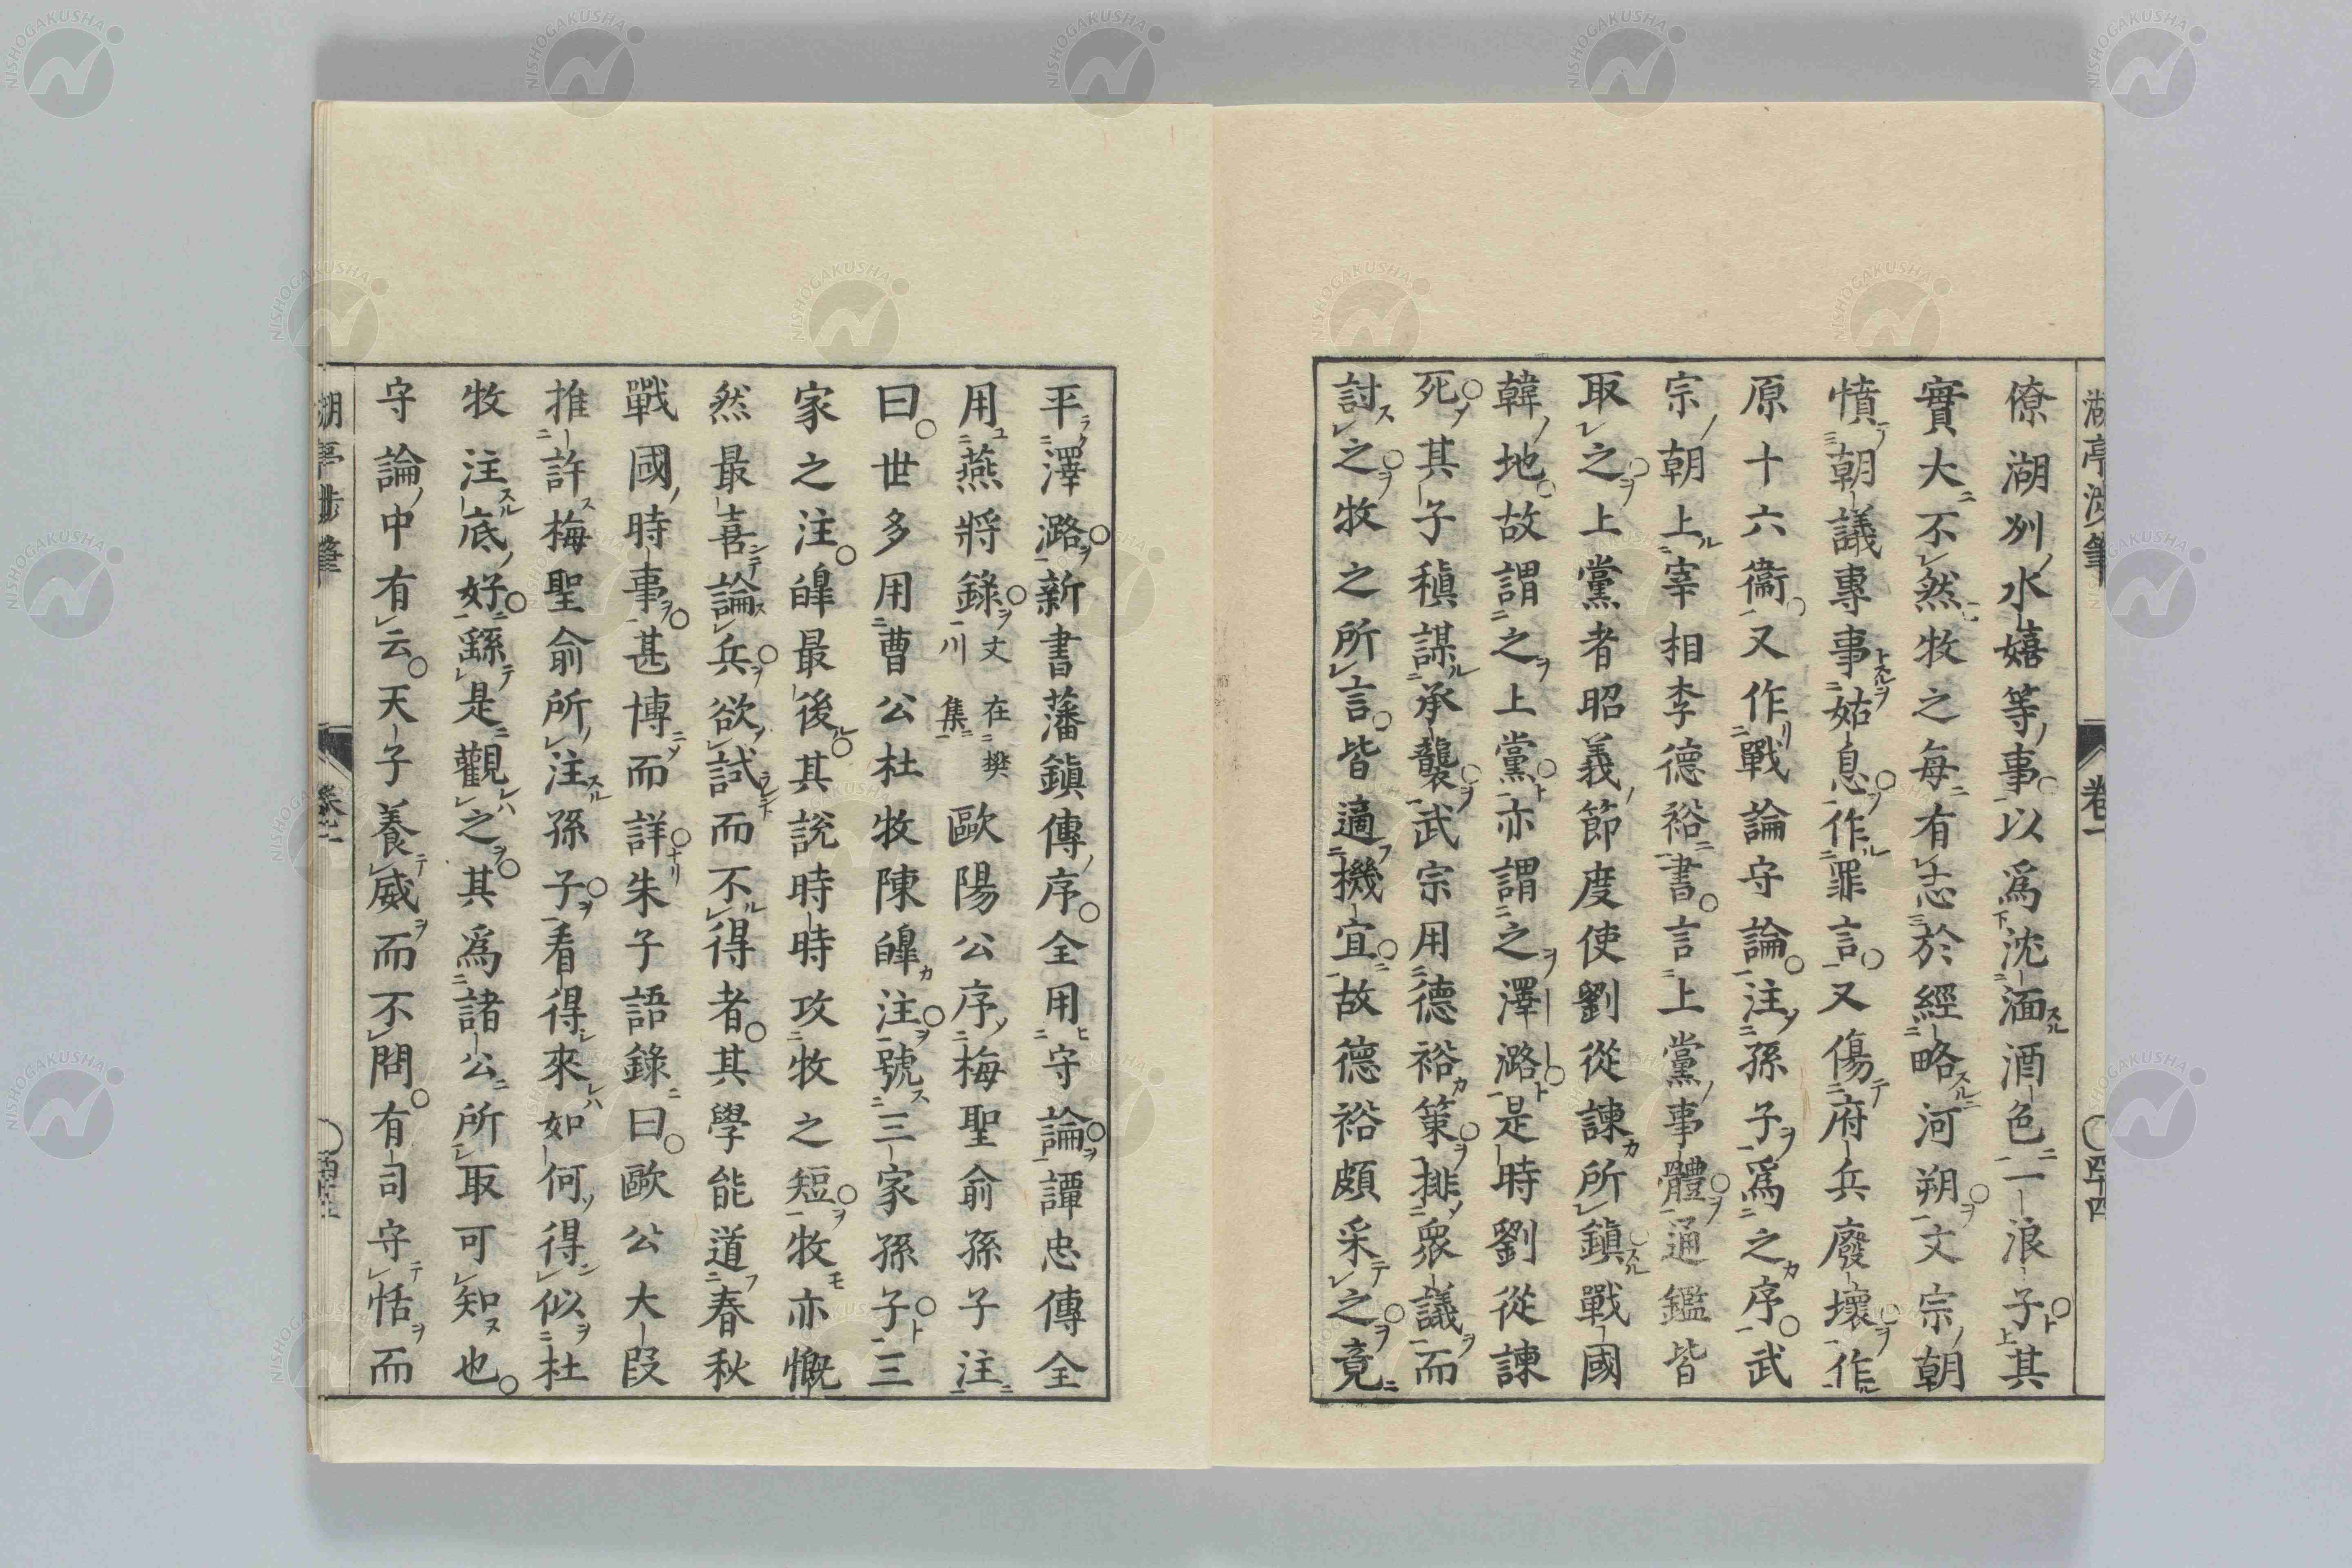 僚湖州水嬉等事以爲沈湎酒色一浪子其
實大不然牧之每有志於經略河朔文宗朝
憤朝議專事姑息作罪言又傷府兵廢壞作
原十六衞又作戰論守論注孫子爲之序武
宗朝上宰相李德裕書言上黨事體通鑑皆
取之上黨者昭義節度使劉從諫所鎭戰國
韓地故謂之上黨亦謂之澤潞是時劉從諫
死其子稹謀承襲武宗用德裕策排衆議而
討之牧之所言皆適機宜故德裕頗采之竟
平澤潞新書藩鎭傳序全用守論譚忠傳全
用燕將錄文在樊川集歐陽公序梅聖俞孫子注
曰世多用曹公杜牧陳皥注號三家孫子三
家之注皥最後其說時時攻牧之短牧亦慨
然最喜論兵欲試而不得者其學能道春秋
戰國時事甚博而詳朱子語錄曰歐公大段
推許梅聖俞所注孫子看得來如何得似杜
牧注底好繇是觀之其爲諸公所取可知也
守論中有云天子養威而不問有司守恬而